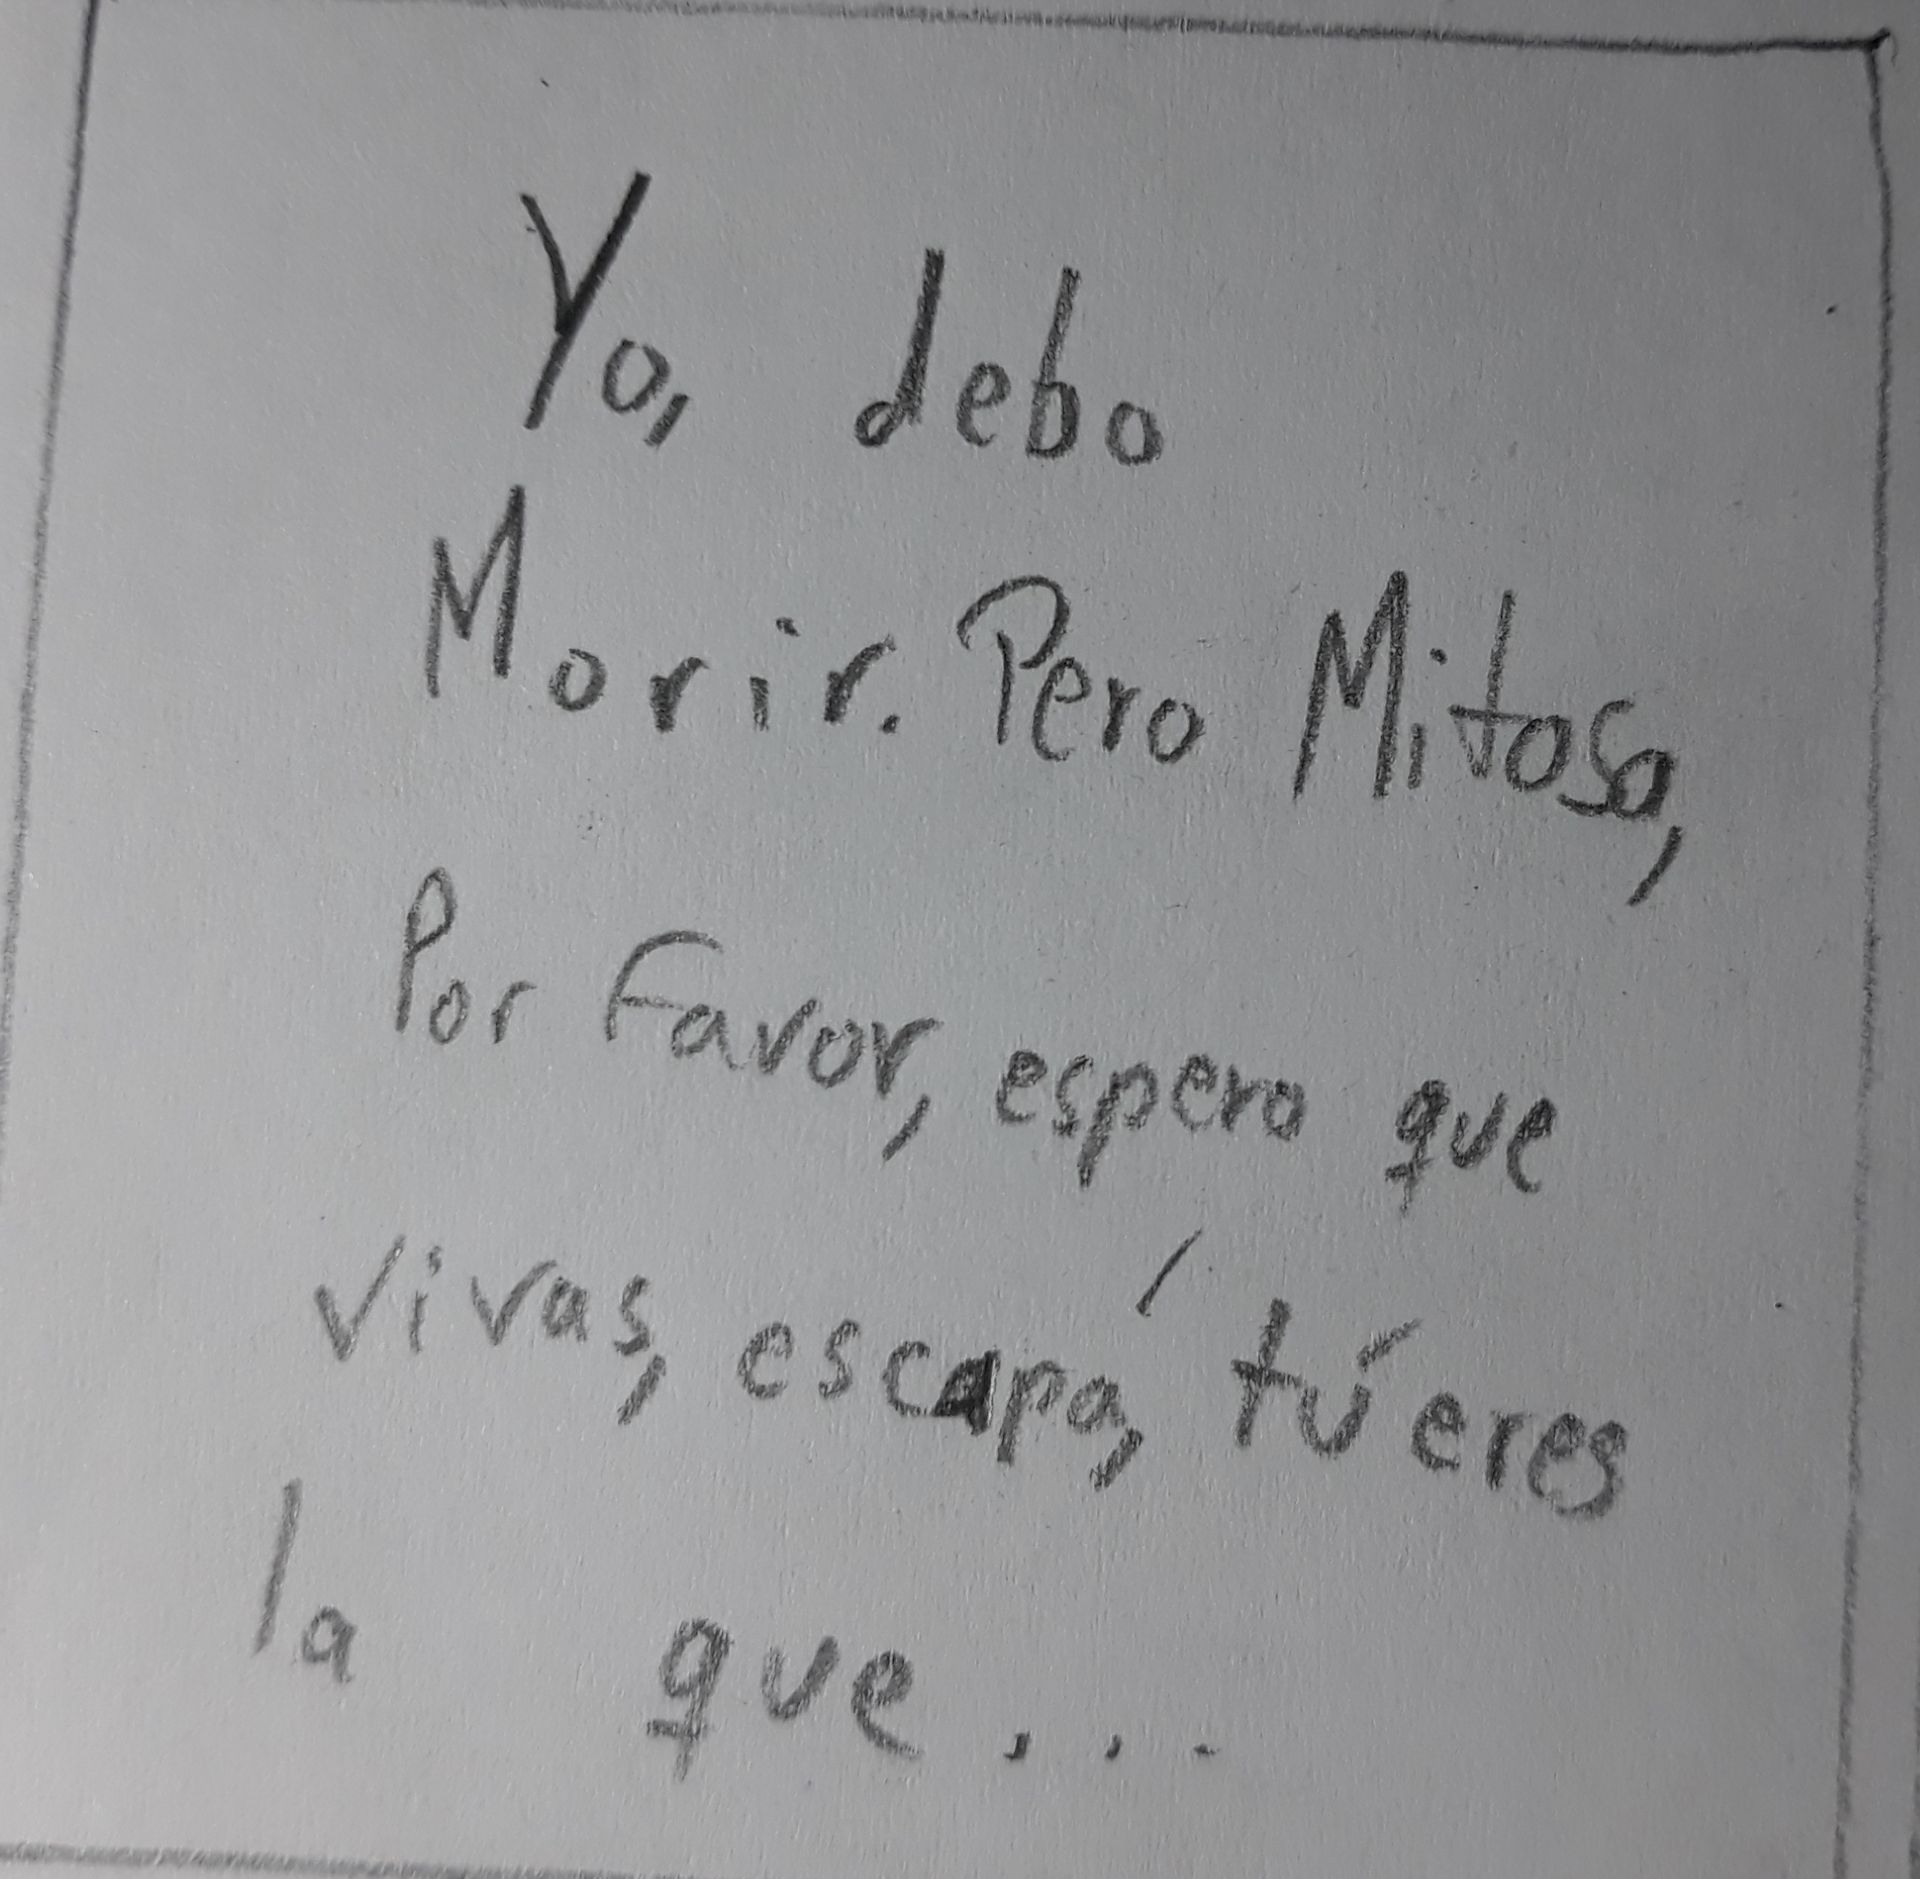 Yo, debo
Morir. Pero Mitosa,
Por Favor, espero que
vivas, escapá, tú eres
la que...